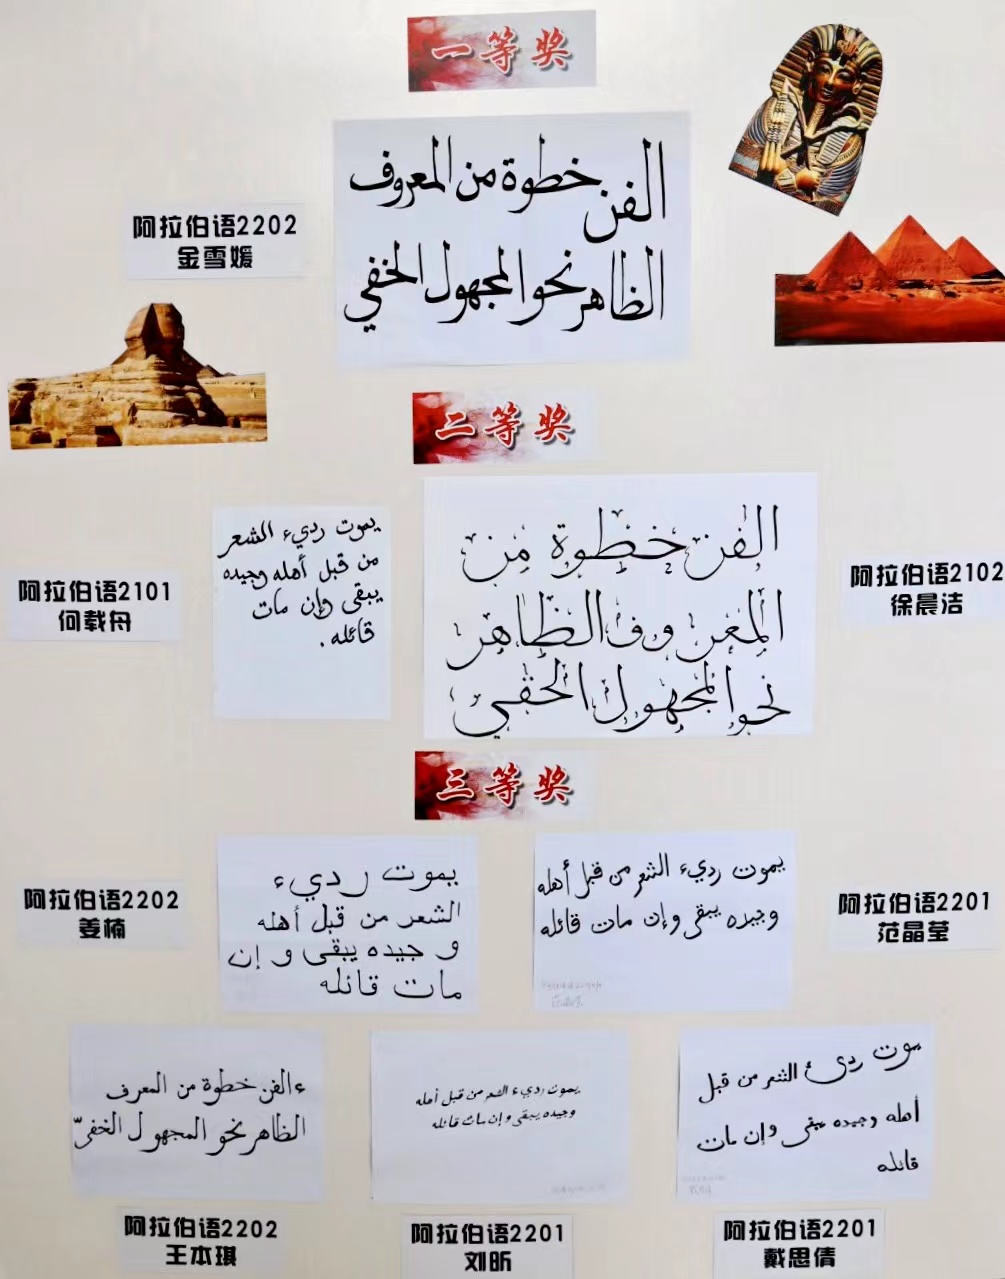 一等奖
الفن خطوة من المعروف
الظاهر نحو المجهول الخفي
阿拉伯语2202
金雪媛
二等奖
يموت رديء الشعر
من قبل أهله وجيده
يبقى وإن مات
قائله.
阿拉伯语2101
何载舟
الفن خظوة من
المعروف الظاهر
نحوا المجهول الخفي
阿拉伯语2102
徐晨洁
三等奖
يموت رديء
الشعر من قبل أهله
و جيده يبقى و إن
مات قائله
阿拉伯语2202
姜楠
يموت رديء الشعر من قبل أهله
وجيده يبقى وإن مات قائله
阿拉伯语2201
范晶莹
ءالفن خطوة من المعرف
الظاهر نحو المجهول الخفيّ
阿拉伯语2202
王本琪
يموت رديء الشعر من قبل أهله
وجيده يبقى وإن مات قائله
阿拉伯语2201
刘昕
يموت ردئ الشعر من قبل
أهله وجيده يبقى وإن مات
قائله
阿拉伯语2201
戴思倩